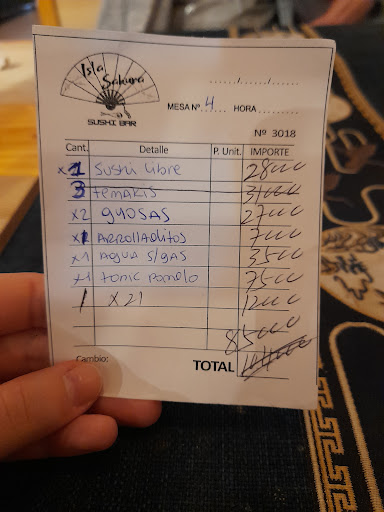 Isla
Sakura
SUSHI BAR
....../....../......
MESA Nº. 4 HORA..........
Nº 3018
Cant. Detalle P. Unit. IMPORTE
x1 Sushi libre 28000
3 temakis 31000
x2 gyosas 27000
x1 Arrolladitos 7000
x1 Agua s/gas 3500
x1 tonic pomelo 7500
1 x21 12000
85000
Cambio: TOTAL